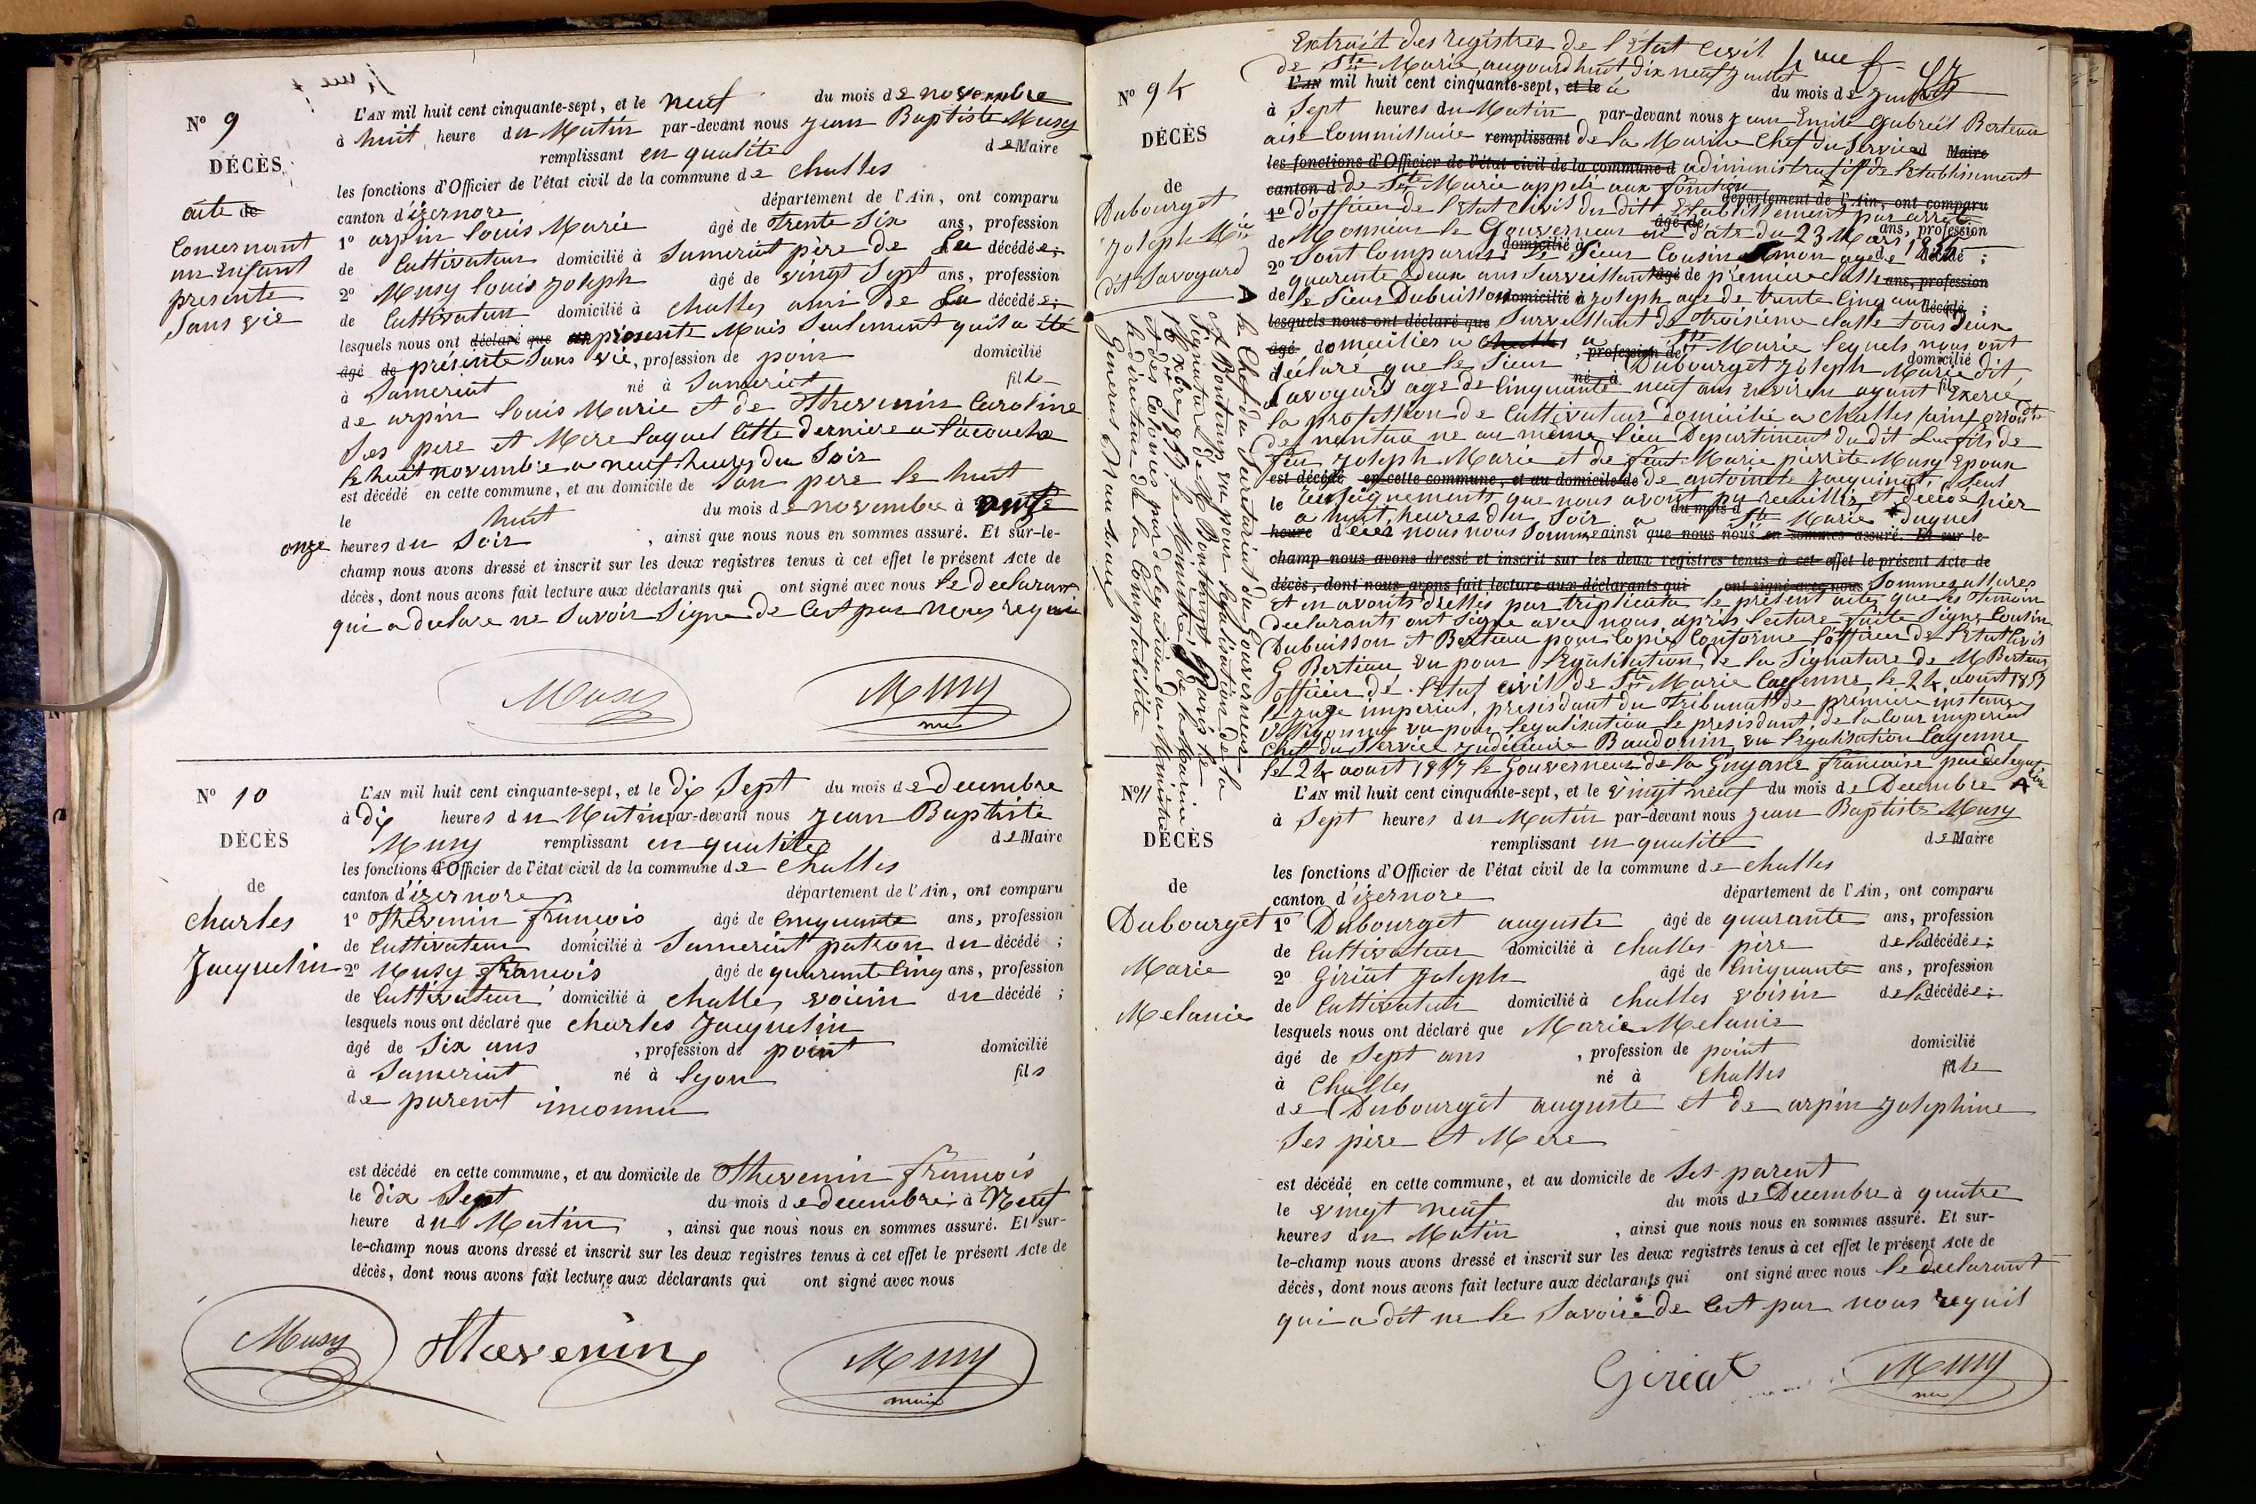 N° 9
DÉCÈS
acte de
Concernant
un Enfant
presente
Sans vie
L'AN mil huit cent cinquante-sept, et le neuf du mois de novembre
à huit heure du Matin par-devant nous jean Baptiste Musy
remplissant en qualité de Maire
les fonctions d'Officier de l'état civil de la commune de Challes
canton d'izernore département de l'Ain, ont comparu
1° arpin louis Marie âgé de Trente Six ans, profession
de Cultivateur domicilié à Samerint père de La décédée;
2° Musy louis joseph âgé de vingt Sept ans, profession
de Cultivateur domicilié à Challes ami de La décédée;
lesquels nous ont déclaré que presente Mais Seulement quil a été
âgé de présente Sans vie, profession de poin domicilié
à Samerint né à Samerint fille
de arpin louis Marie et de Thevenin Caroline
Ses pere et Mere laquel cette derniere a l'acouche
le huit novembre a neuf heures du Soir
est décédé en cette commune, et au domicile de Son pere le huit
le huit du mois de novembre à
onze heures du Soir, ainsi que nous nous en sommes assuré. Et sur-le-
champ nous avons dressé et inscrit sur les deux registres tenus à cet effet le présent Acte de
décès, dont nous avons fait lecture aux déclarants qui ont signé avec nous le declarant
qui a declare ne Savoir Signe de Cest par Nous requi
Musy
Musy
N° 10
DÉCÈS
de
Charles
Jacquelin
L'AN mil huit cent cinquante-sept, et le dix Sept du mois de Decembre
à dix heures du Matin par-devant nous jean Baptiste
Musy remplissant en qualité de Maire
les fonctions d'Officier de l'état civil de la commune de Challes
canton d'izernore département de l'Ain, ont comparu
1° Thevenin françois âgé de Cinquante ans, profession
de Cultivateur domicilié à Samerint patron du décédé;
2° Musy francois âgé de quarante Cinq ans, profession
de Cultivateur domicilié à Challes voisin du décédé;
lesquels nous ont déclaré que Charles Jacquelin
âgé de Six ans, profession de point domicilié
à Samerint né à lyon fils
de parent inconnu
est décédé en cette commune, et au domicile de Thevenin françois
le Dix Sept du mois de decembre à Neuf
heure du Matin, ainsi que nous nous en sommes assuré. Et sur-
le-champ nous avons dressé et inscrit sur les deux registres tenus à cet effet le présent Acte de
décès, dont nous avons fait lecture aux déclarants qui ont signé avec nous
Musy
Thevenin
Musy
maire
N° 9 4
DÉCÈS
de
Dubourget
joseph Mie
dit Savoyard
Extrait des registres de l'Etat Civil
de Ste Marie aujourdhuit dix neuf juillet
L'AN mil huit cent cinquante-sept, et le à du mois de juillet
à Sept heures du Matin par-devant nous jean Emile Gabriel Berteau
aide Commissaire remplissant de la Marine Chef du Service d Maire
les fonctions d'Officier de l'état civil de la commune d administratif de l'etablissement
canton d de Ste Marie appelé aux fonction département de l'Ain, ont comparu
1° d'officier de l'Etat Civil du dit Etablissement par arreté âgé de ans, profession
de Monsieur le Gouverneur en date du 23 Mars domicilié à
2° Sont Comparus le Sieur Cousin Simon age de décédé;
quarente deux ans Surveillant âgé de première Classe ans, profession
de le Sieur Dubuisson domicilié à joseph age de trente Cinq ans décédé;
lesquels nous ont déclaré que Surveillant de troisieme Classe tous deux
âgé domiciliés a Challes a profession de Ste Marie lesquels nous ont
déclaré que le Sieur Dubourget joseph Marie dit domicilié
Savoyard age de Cinquante né à neuf ans Environ ayant fil Exercé
la profession de Cultivateur domicilié a Challes
de nantua ne au même lieu Departiment du dit fils de
feu joseph Marie et de feue Marie pierrete Musy Epoux
est décédé en cette commune, et au domicile de de antoinete jacquinot Seul
le renseignements que nous avons pu recueillir et décédé hier du mois d
a huit heures du Soir a Ste Marie duquel
heure déces nous nous Somme ainsi que nous nous en sommes assuré. Et sur-le-
champ nous avons dressé et inscrit sur les deux registres tenus à cet effet le présent Acte de
décès, dont nous avons fait lecture aux déclarants qui ont signé avec nous Sommes assures
Et en avons dresses par triplicata le présent acte que les Temoin
declarants ont Signe avec nous après lecture faite Signé Cousin
Dubuisson et Berteau pour Copie Conforme l'officier de l'Etat Civil
G Berteau vu pour legalisation de la Signature de M Berteau
officier de l'Etat civil de Ste Marie Cayenne le 24 aout 1857
le juge imperial, presisdant du Tribunal de premiere instance
vu pour legalisation le presisdant de la Cour imperial
Chef du Service judiciaire Baudouin, vu legalisation Cayenne
le 24 aoust 1857 le Gouverneur de la Guyane francaise par delegation
A le Chef du Secretariat du Gouverneur
A Bontemp vu pour legalisation de la
Signature de M Bontemp, Paris le
16 xbre 1857 le Ministre de la Marine
et des Colonies par delegation du Ministre
le directeur de la Comptabilité
General
N° 11
DÉCÈS
de
Dubourget
Marie
Melanie
L'AN mil huit cent cinquante-sept, et le vingt neuf du mois de Decembre
à Sept heures du Matin par-devant nous jean Baptiste Musy
remplissant en qualité de Maire
les fonctions d'Officier de l'état civil de la commune de Challes
canton d'izernore département de l'Ain, ont comparu
1° Dubourget auguste âgé de quarante ans, profession
de Cultivateur domicilié à Challes père de la décédée;
2° Giriat joseph âgé de Cinquante ans, profession
de Cultivateur domicilié à Challes voisin de la décédée;
lesquels nous ont déclaré que Marie Melanie
âgé de Sept ans, profession de point domicilié
à Challes né à Challes fille
de Dubourget auguste et de arpin josephine
Ses père et Mere
est décédé en cette commune, et au domicile de Ses parent
le vingt neuf du mois de Decembre à quatre
heures du Matin, ainsi que nous nous en sommes assuré. Et sur-
le-champ nous avons dressé et inscrit sur les deux registres tenus à cet effet le présent Acte de
décès, dont nous avons fait lecture aux déclarants qui ont signé avec nous le declarant
qui a dit ne le Savoir de Cest par nous requis
Giriat
Musy